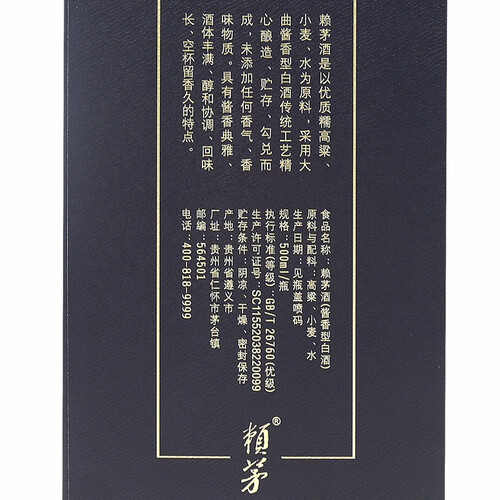 赖茅酒是以优质糯高粱、
小麦、水为原料，采用大
曲酱香型白酒传统工艺精
心酿造、贮存、勾兑而
成，未添加任何香气、香
味物质。具有酱香典雅、
酒体丰满、醇和协调、回味
长、空杯留香久的特点。
食品名称：赖茅酒(酱香型白酒)
原料与配料：高粱、小麦、水
生产日期：见瓶盖喷码
规格：500ml/瓶
执行标准(等级)：GB/T 26760(优级)
生产许可证号：SC11552038220099
贮存条件：阴凉、干燥、密封保存
产地：贵州省遵义市
厂址：贵州省仁怀市茅台镇
邮编：564501
电话：400-818-9999
賴茅®